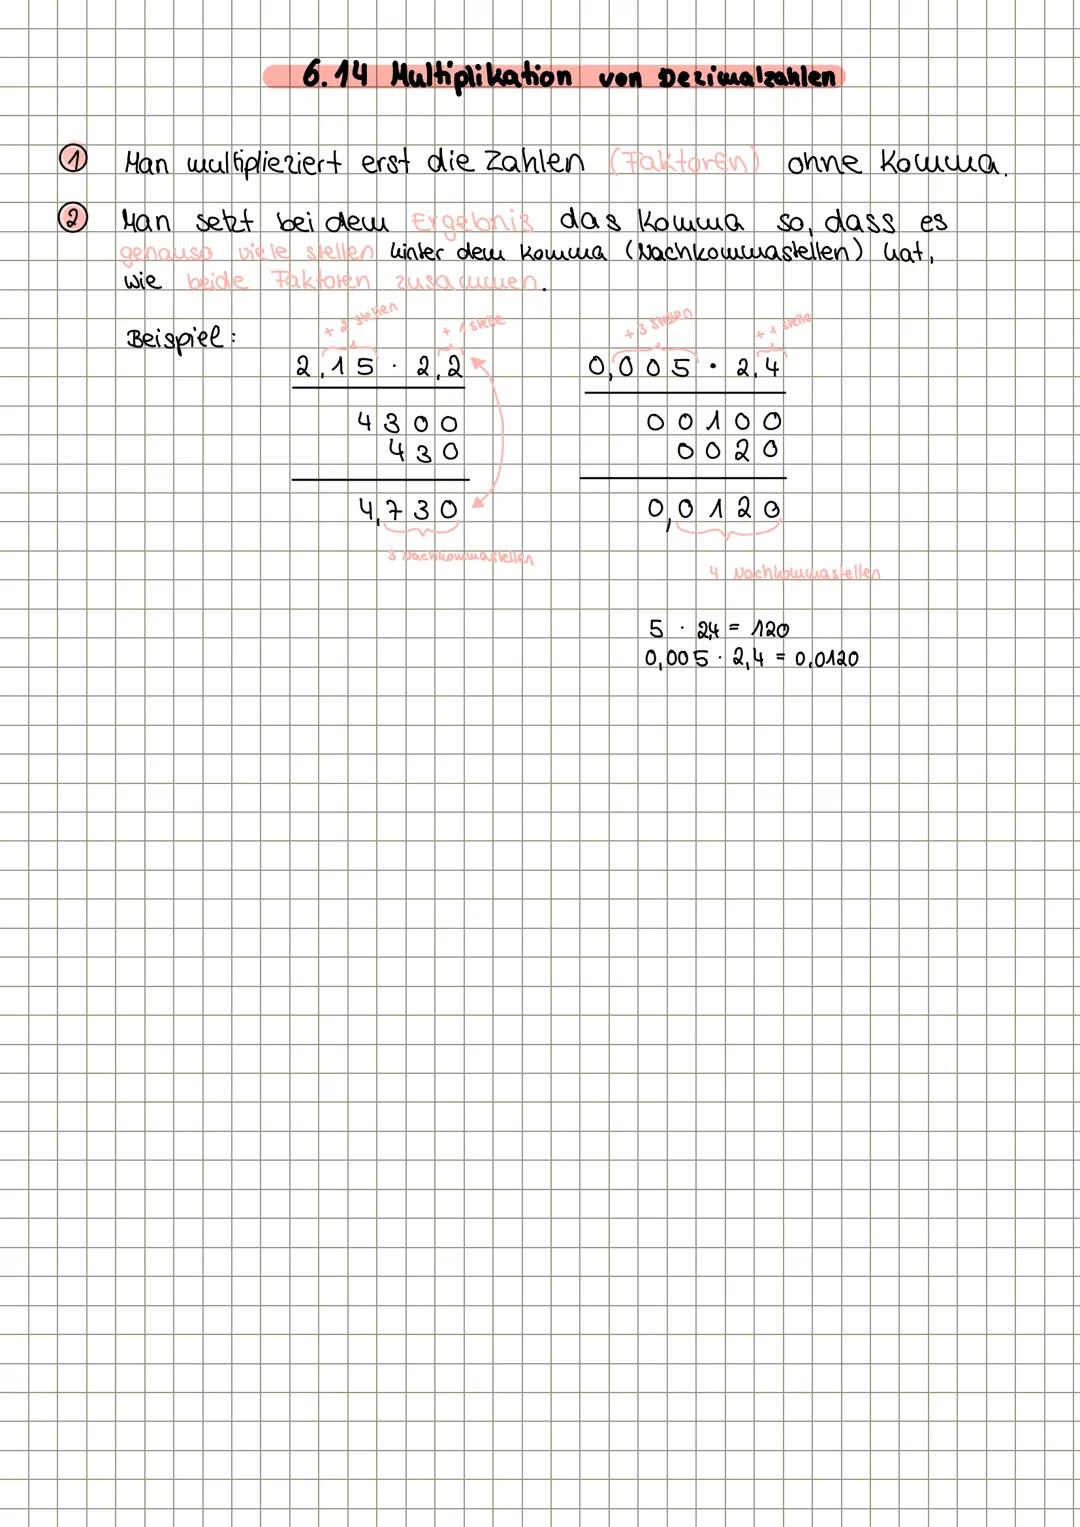 6.14 Multiplikation von Dezimalzahlen
1 Man multiplieziert erst die Zahlen (Faktoren) ohne Komma.
2 Man setzt bei dem Ergebnis das Komma so, dass es
genauso viele stellen hinter dem Komma (Nachkommastellen) hat,
wie beide Faktoren zusammen.
Beispiel:
+ 2 stellen + 1 stelle
2,15 · 2,2
4300
430
4,730
3 Nachkommastellen
+3 Stellen + 1 stelle
0,005 · 2,4
00100
0020
0,0120
4 Nachkommastellen
5 · 24 = 120
0,005 · 2,4 = 0,0120